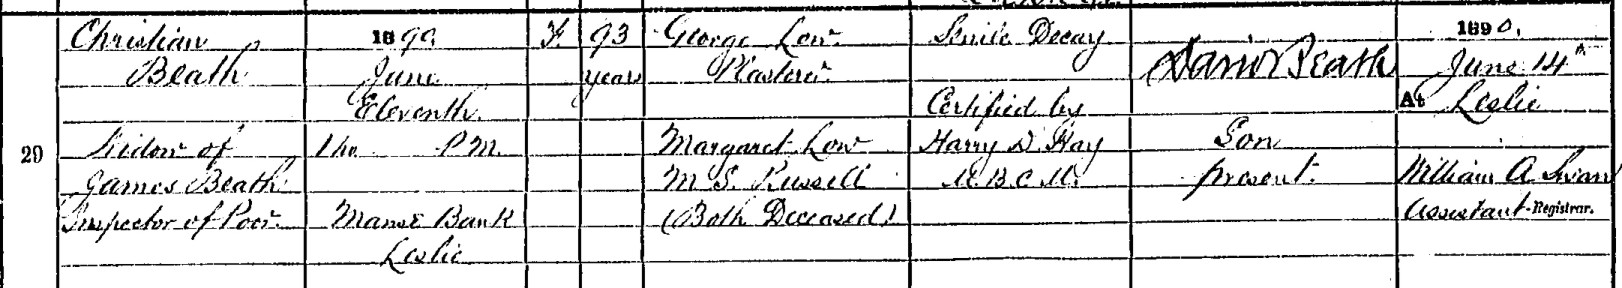 29
Christian
Beath
Widow of
James Beath
Inspector of Poor
1890
June
Eleventh
1 ho P.M.
Manse Bank
Leslie
F.
93
years
George Low
Plasterer
Margaret Low
M.S. Russell
(Both Deceased)
Senile Decay
Certified by
Harry D. Hay
M.B.C.M.
David Beath
Son
present.
1890.
June 14th
At Leslie
William A Swan
Assistant Registrar.